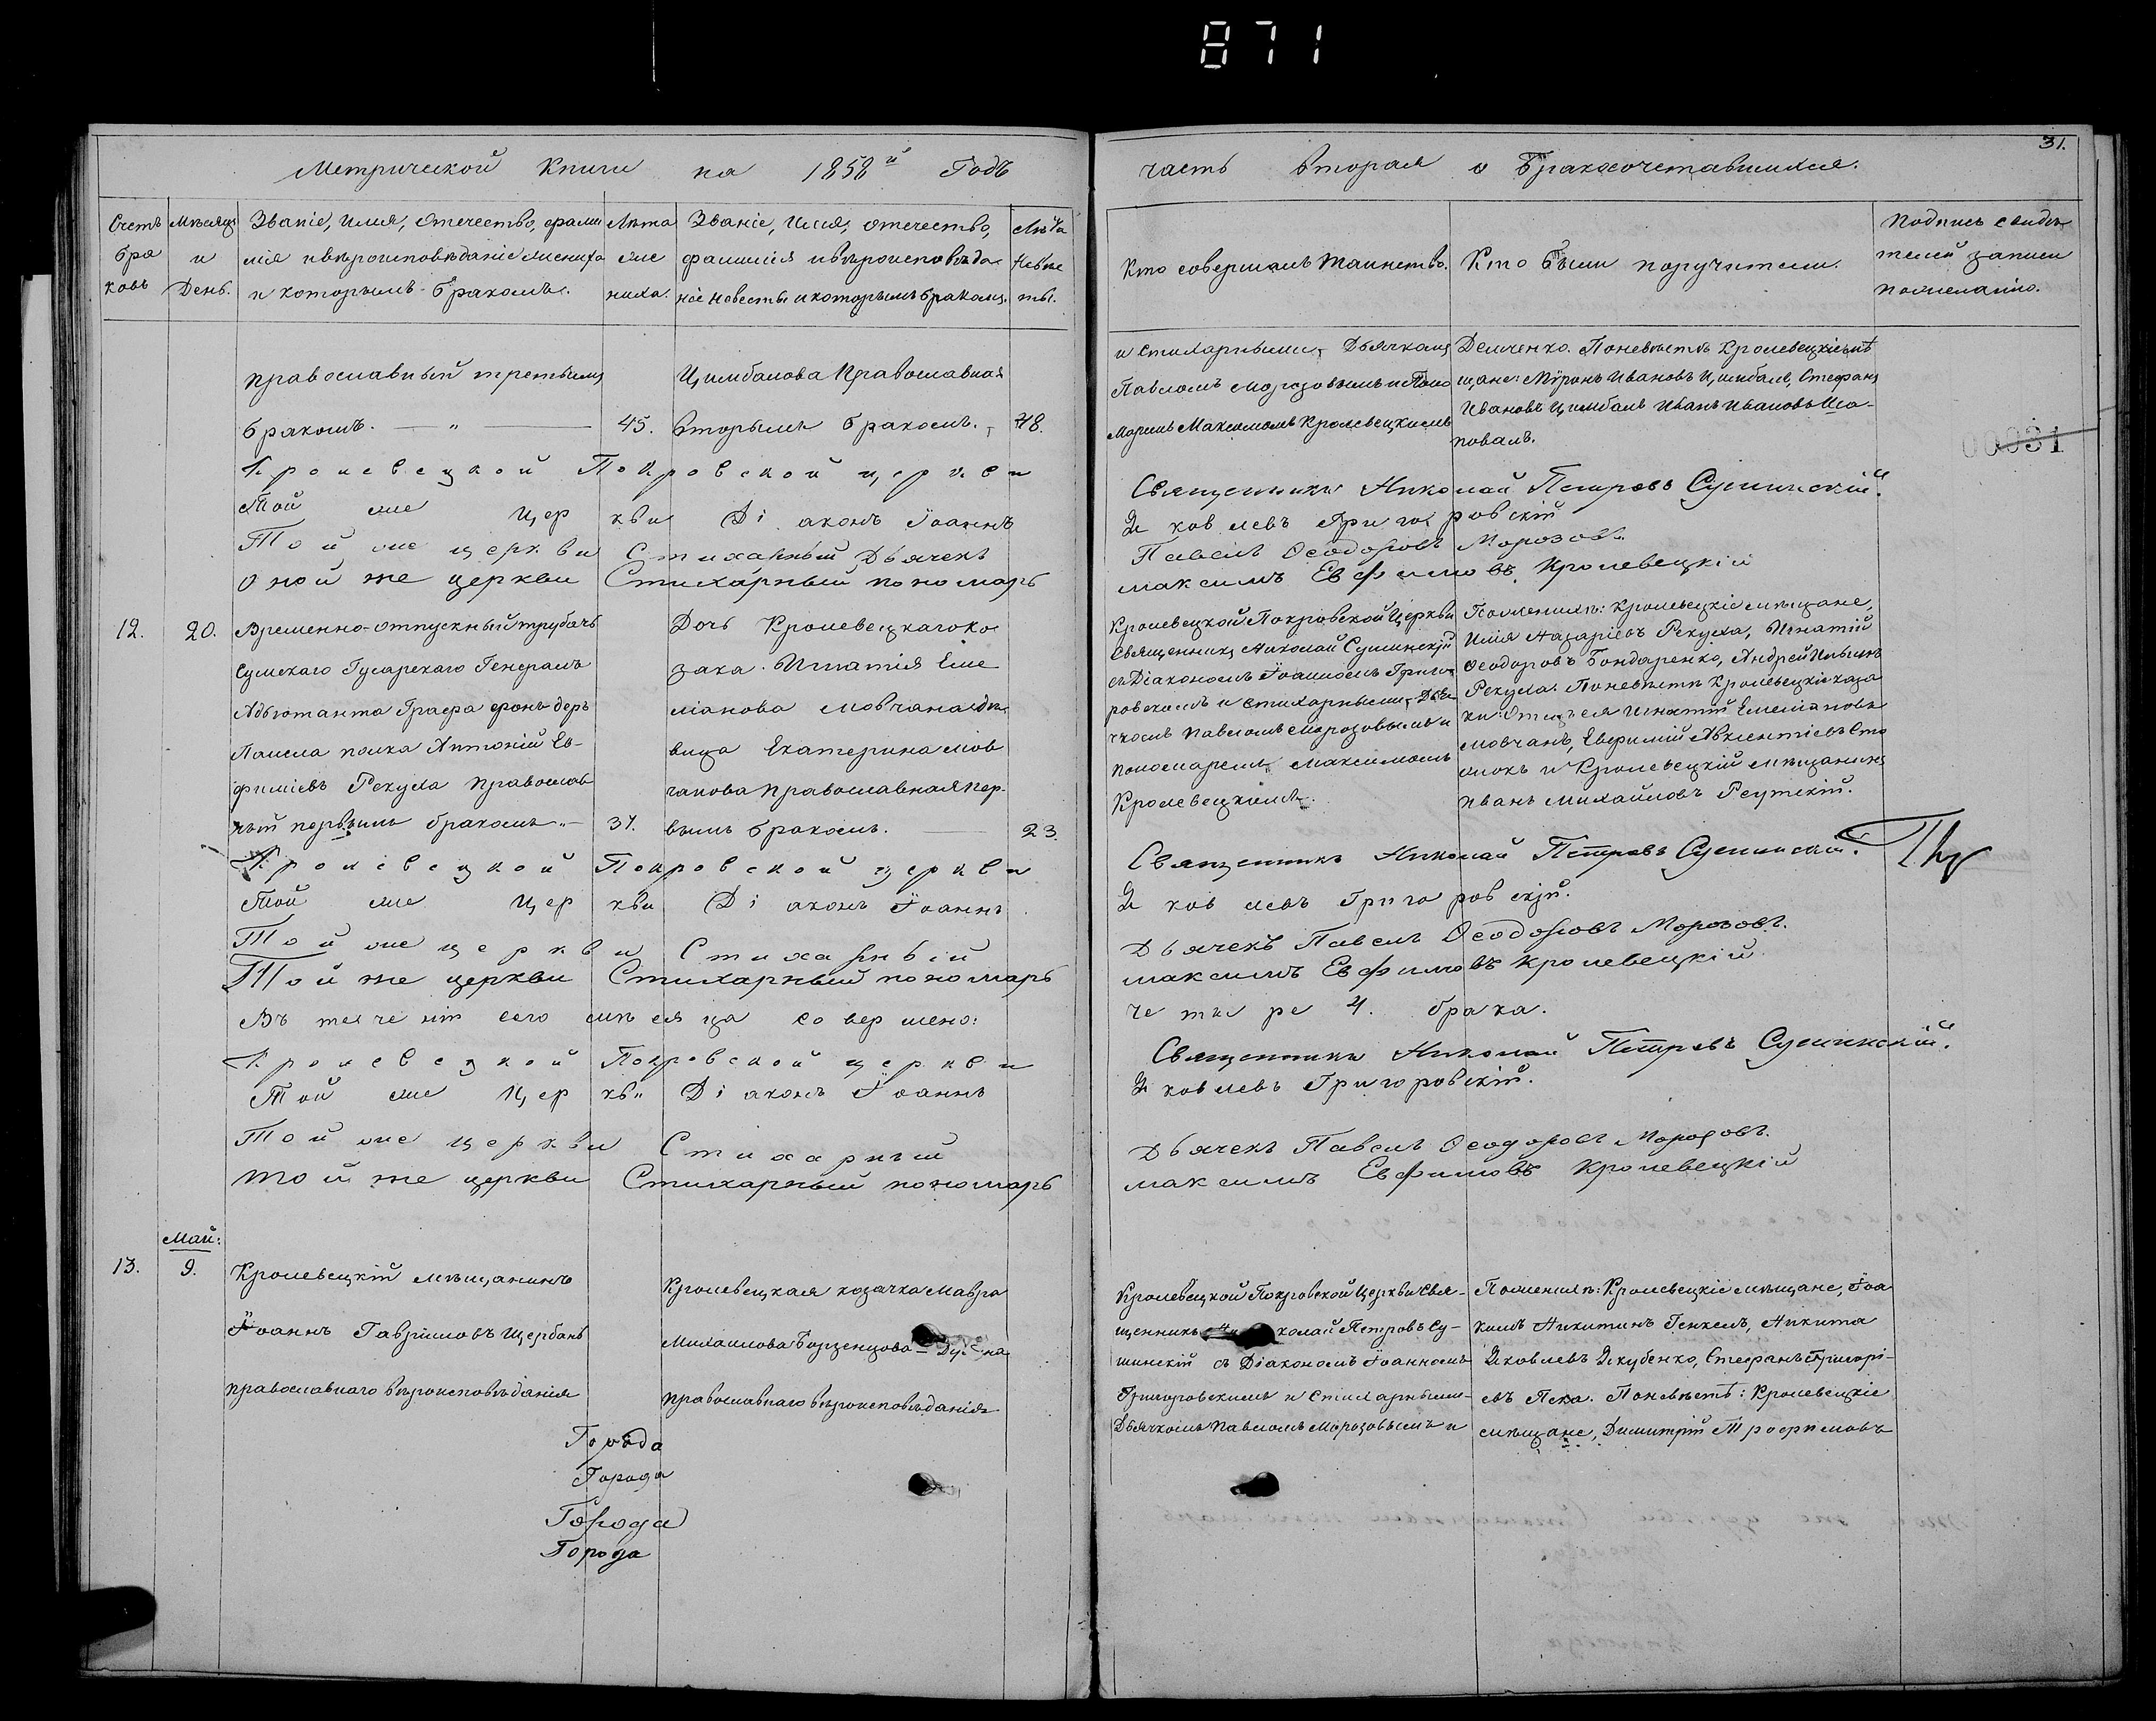 871
31.
Метрической Книги на 1858й Годъ
часть вторая о Бракосочетавшихся.
Счетъ браковъ
Мѣсяцъ и День.
Званіе, Имя, Отечество, фами
лія и вѣроисповѣданіе жениха
и которымъ бракомъ.
Лѣта
же
ниха.
Званіе, Имя, отечество,
фамилія и вѣроисповѣда
ніе невесты и которымъ бракомъ.
Лѣта
Невѣс
ты.
Кто совершалъ Таинство.
Кто были поручители.
Подпись свидѣ
телей записи
по желанію.
православный третьимъ
бракомъ. — „ — 45.
Цимбалова Православная
вторымъ бракомъ. 48.
и стихарными, Дьячкомъ
Павломъ Морозовымъ и Поно
маремъ Максимомъ Кролевецкимъ
Демченко. По невѣстѣ Кролевецкіе мѣ
щане: Мѵронъ Ивановъ Цимбалъ, Стефанъ
Ивановъ Цимбалъ Иванъ Ивановъ Ша-
повалъ.
00031
Кролевецкой Покровской церкви Священникъ Николай Петровъ Сушинскій.
Той же Церкви Діаконъ Іоаннъ Яковлевъ Григоровскій
Той же церкви Стихарный Дьячекъ Павелъ Ѳеодоровъ Морозовъ.
Оной же церкви Стихарный пономарь максимъ Евфимовъ Кролевецкій
12. 20.
Временно-отпускный трубачъ
Сумскаго Гусарскаго Генералъ
Адъютанта Графа фонъ деръ
Палена полка Антоній Ев-
фиміевъ Рекуха православ
ный первымъ бракомъ „ — 37.
Дочь Кролевецкаго ко
зака Игнатія Еме
ліанова Мовчана дѣ
вица Екатерина Мов
чанова православная пер-
вымъ бракомъ. — 23.
Кролевецкой Покровской Церкви
Священникъ Николай Сушинскій
съ Діакономъ Іоанномъ Григо
ровскимъ и стихарными, Дья
чкомъ Павломъ Морозовымъ и
пономаремъ Максимомъ
Кролевецкимъ.
По женихѣ: Кролевецкіе мѣщане,
Илія Назаріевъ Рекуха, Игнатій
Ѳеодоровъ Бондаренко, Андрей Ильинъ
Рекуха. По невѣстѣ Кролевецкіе каза
ки: Отецъ ея Игнатій Емеліановъ
Мовчанъ, Евфимій Авксентіевъ
и Кролевецкій мѣщанинъ
Иванъ Михайловъ Реутскій.
Кролевецкой Покровской церкви Священникъ Николай Петровъ Сушинскій.
Той же Церкви Діаконъ Іоаннъ Яковлевъ Григоровскій.
Той же церкви Стихарный Дьячекъ Павелъ Ѳеодоровъ Морозовъ.
Той же церкви Стихарный пономарь максимъ Евфимовъ Кролевецкій
Въ теченіи сего мѣсяца совершено: четыре 4. брака.
Кролевецкой Покровской церкви Священникъ Николай Петровъ Сушинскій.
Той же Церкви Діаконъ Іоаннъ Яковлевъ Григоровскій.
Той же церкви Стихарный Дьячекъ Павелъ Ѳеодоровъ Морозовъ.
той же церкви Стихарный пономарь максимъ Евфимовъ Кролевецкій
Май:
13. 9.
Кролевецкій мѣщанинъ
Іоаннъ Гавріиловъ Щербань
православнаго вѣроисповѣданія
Кролевецкая козачка Мавра
Михаилова
православнаго вѣроисповѣданія
Кролевецкой Покровской Церкви Свя-
щенникъ Николай Петровъ Су-
шинскій съ Діакономъ Іоанномъ
Григоровскимъ и Стихарными
Дьячкомъ Павломъ Морозовымъ и
По женихѣ: Кролевецкіе мѣщане, Іоа
кимъ Никитинъ Генкелъ, Никита
Яковлевъ Якубенко, Стефанъ Григорі-
евъ Пека. По невѣстѣ: Кролевецкіе
мѣщане, Димитрій Трофимовъ
Города
Города
Города
Города